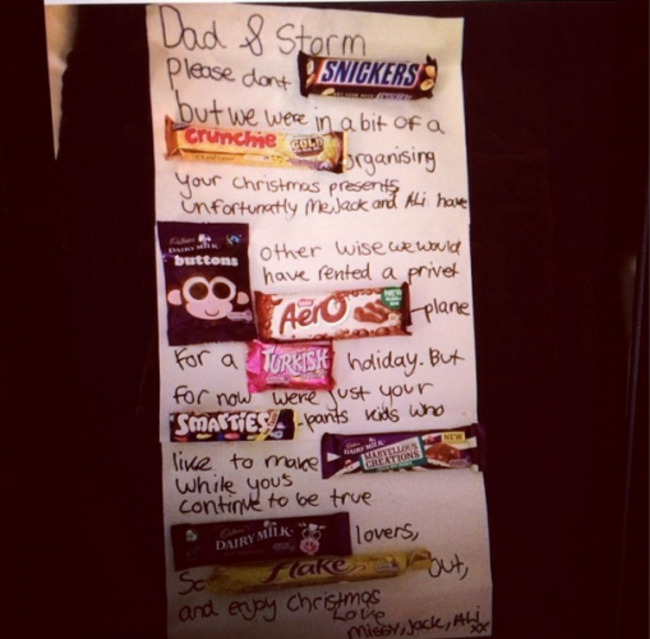 Dad & Storm
please dont SNICKERS
but we were in a bit of a
crunchie GOLD organising
your christmas presents,
unfortunatly Me, Jack and Ali have
Cadbury DAIRY MILK
buttons
other wise we would
have rented a privet
Nestle AERO NEW -plane
for a TURKISH holiday. But
for now were just your
SMARTIES -pants kids who
like to make Cadbury DAIRY MILK MARVELLOUS CREATIONS NEW
while yous
continue to be true
Cadbury DAIRY MILK lovers,
So Flake out,
and enjoy christmas
Love
missy, Jack, ALi xx